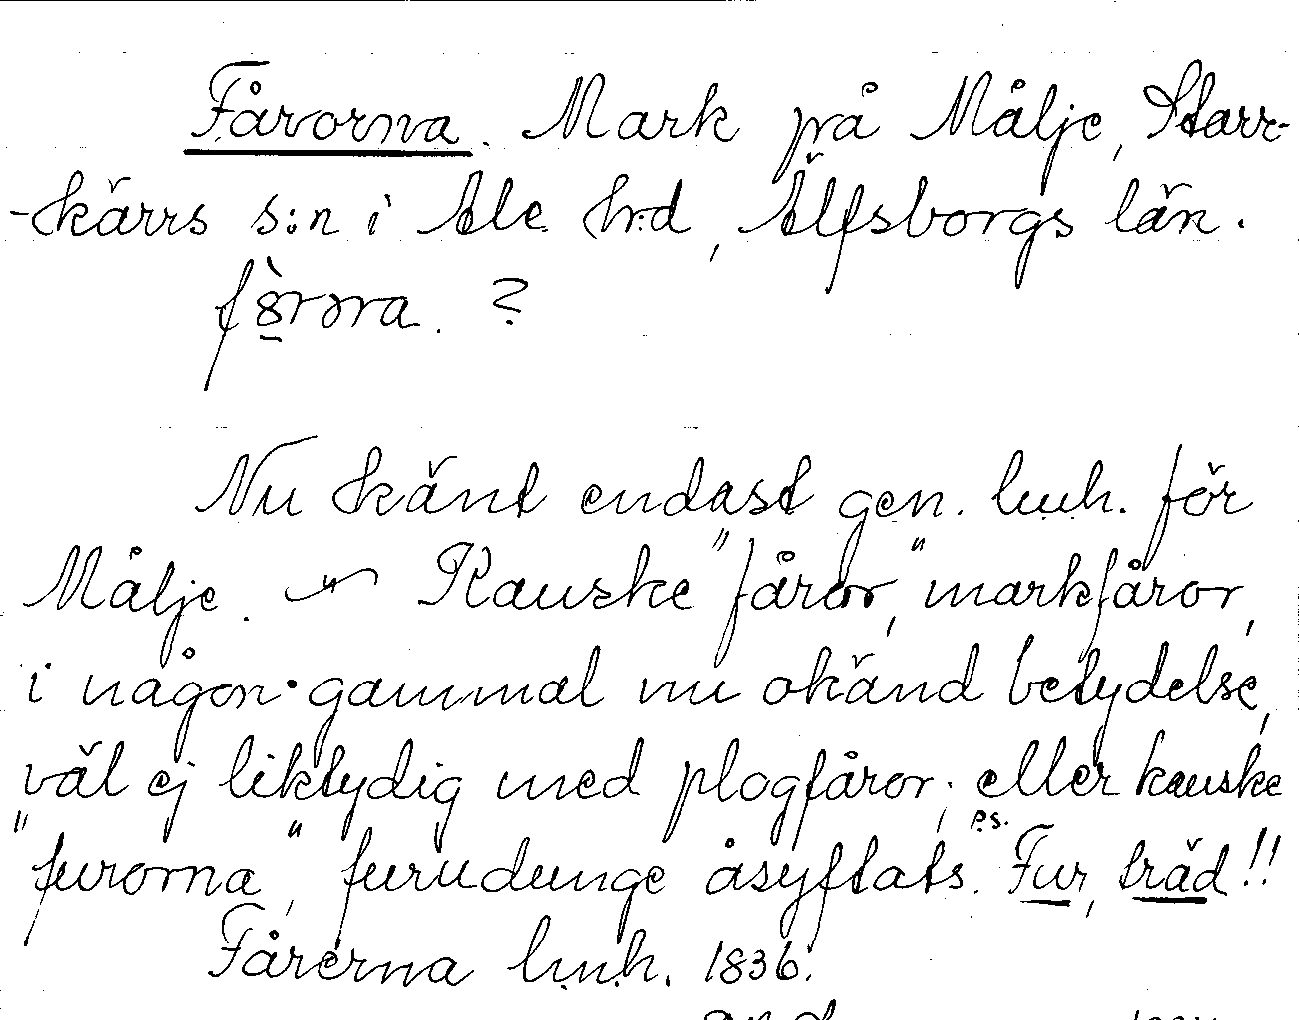 Fårorna. Mark på Målje, Starr-
-kärrs s:n i Ale hrd, Älfsborgs län.
?
Nu känt endast gen. lmh. för
Målje. Kanske "fåror," markfåror,
i någon gammal nu okänd betydelse,
väl ej liktydig med plogfåror; eller kanske
"furorna," furudunge åsyftats. Fur, träd!!
Fårerna lmh. 1836.